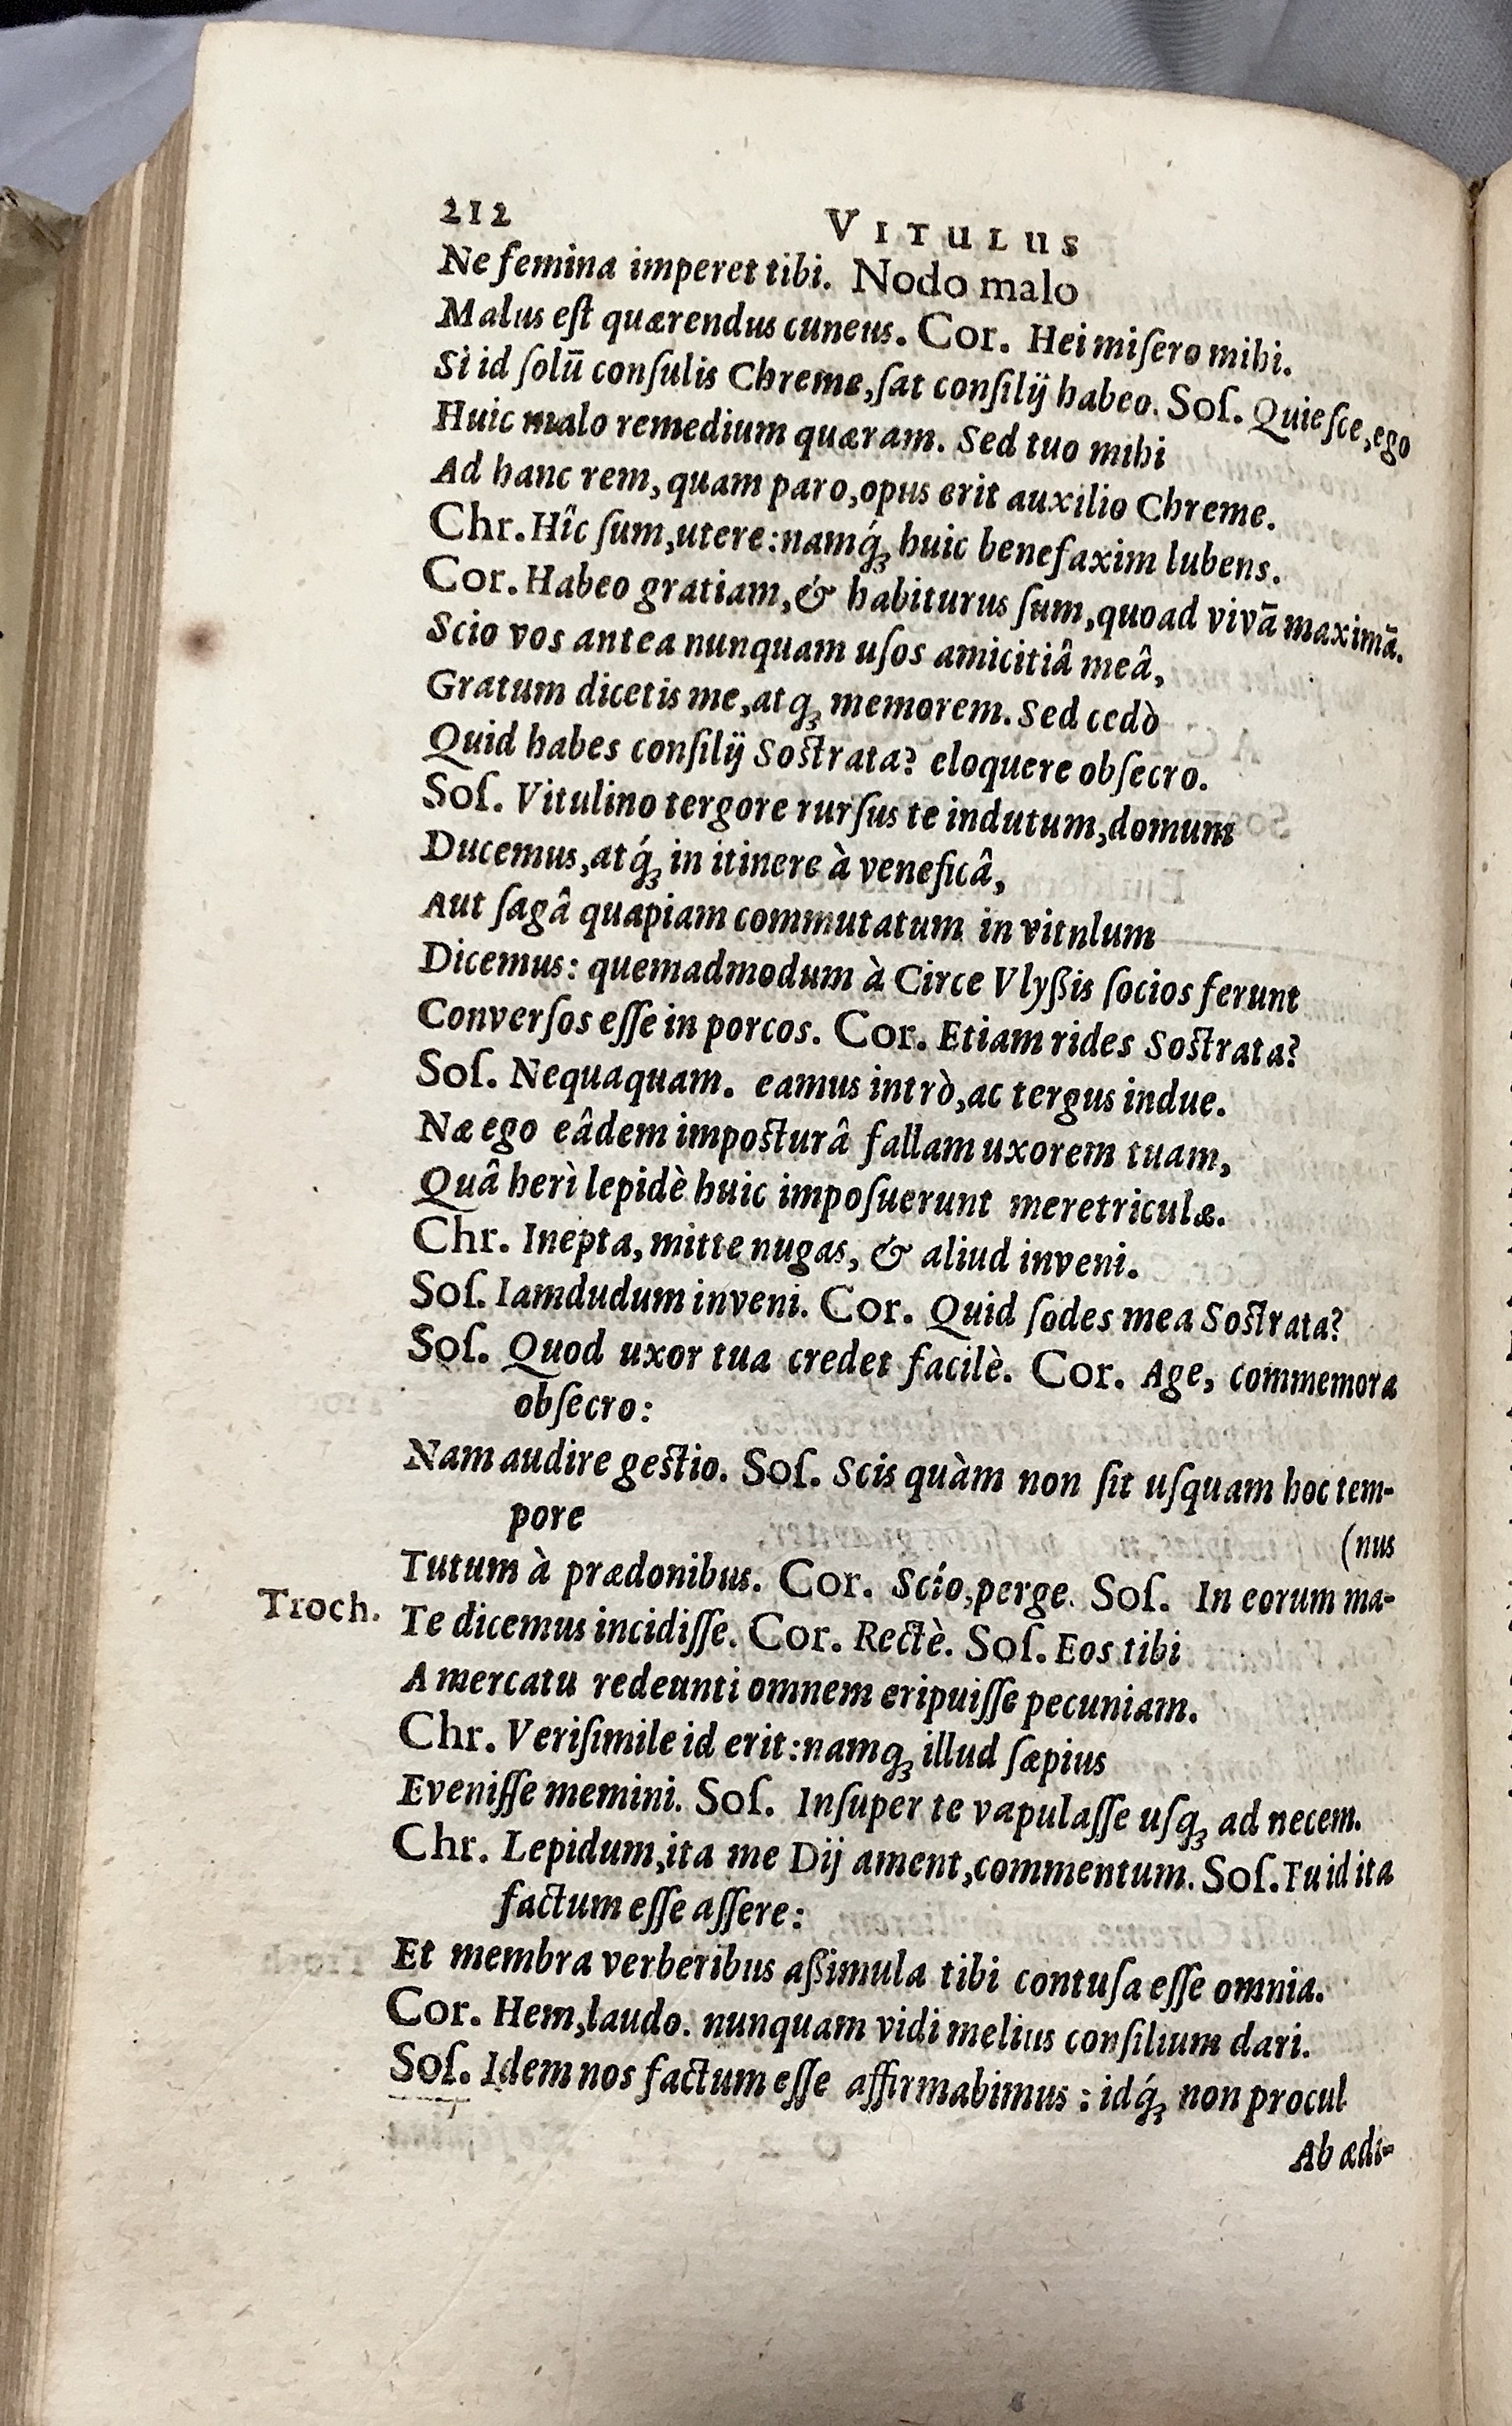 212
VITULUS
Ne femina imperet tibi. Nodo malo
Malus eſt quærendus cuneus. Cor. Hei miſero mihi.
Si id ſolū conſulis Chreme, ſat conſilij habeo. Soſ. Quieſce, ego
Huic malo remedium quæram. Sed tuo mihi
Ad hanc rem, quam paro, opus erit auxilio Chreme.
Chr. Hîc ſum, utere: namq́ꝫ huic benefaxim lubens.
Cor. Habeo gratiam, & habiturus ſum, quoad vivā maximā.
Scio vos antea nunquam uſos amicitiâ meâ,
Gratum dicetis me, atqꝫ memorem. Sed cedò
Quid habes conſilij Soſtrata? eloquere obſecro.
Soſ. Vitulino tergore rurſus te indutum, domum
Ducemus, atq́ꝫ in itinere à veneficâ,
Aut ſagâ quapiam commutatum in vitnlum
Dicemus: quemadmodum à Circe Vlyßis ſocios ferunt
Converſos eſſe in porcos. Cor. Etiam rides Soſtrata?
Soſ. Nequaquam. eamus intrò, ac tergus indue.
Næ ego eâdem impoſturâ fallam uxorem tuam,
Quâ herì lepidè huic impoſuerunt meretriculæ.
Chr. Inepta, mitte nugas, & aliud inveni.
Soſ. Iamdudum inveni. Cor. Quid ſodes mea Soſtrata?
Soſ. Quod uxor tua credet facilè. Cor. Age, commemora
obſecro:
Nam audire geſtio. Soſ. Scis quàm non ſit uſquam hoc tem-
pore
(nus
Tutum à prædonibus. Cor. Scio, perge. Soſ. In eorum ma-
Troch. Te dicemus incidiſſe. Cor. Rectè. Soſ. Eos tibi
A mercatu redeunti omnem eripuiſſe pecuniam.
Chr. Veriſimile id erit: namqꝫ illud ſæpius
Eveniſſe memini. Soſ. Inſuper te vapulaſſe uſqꝫ ad necem.
Chr. Lepidum, ita me Dij ament, commentum. Soſ. Tu id ita
factum eſſe aſſere:
Et membra verberibus aßimula tibi contuſa eſſe omnia.
Cor. Hem, laudo. nunquam vidi melius conſilium dari.
Soſ. Idem nos factum eſſe affirmabimus: idq́ꝫ non procul
Ab ædi-